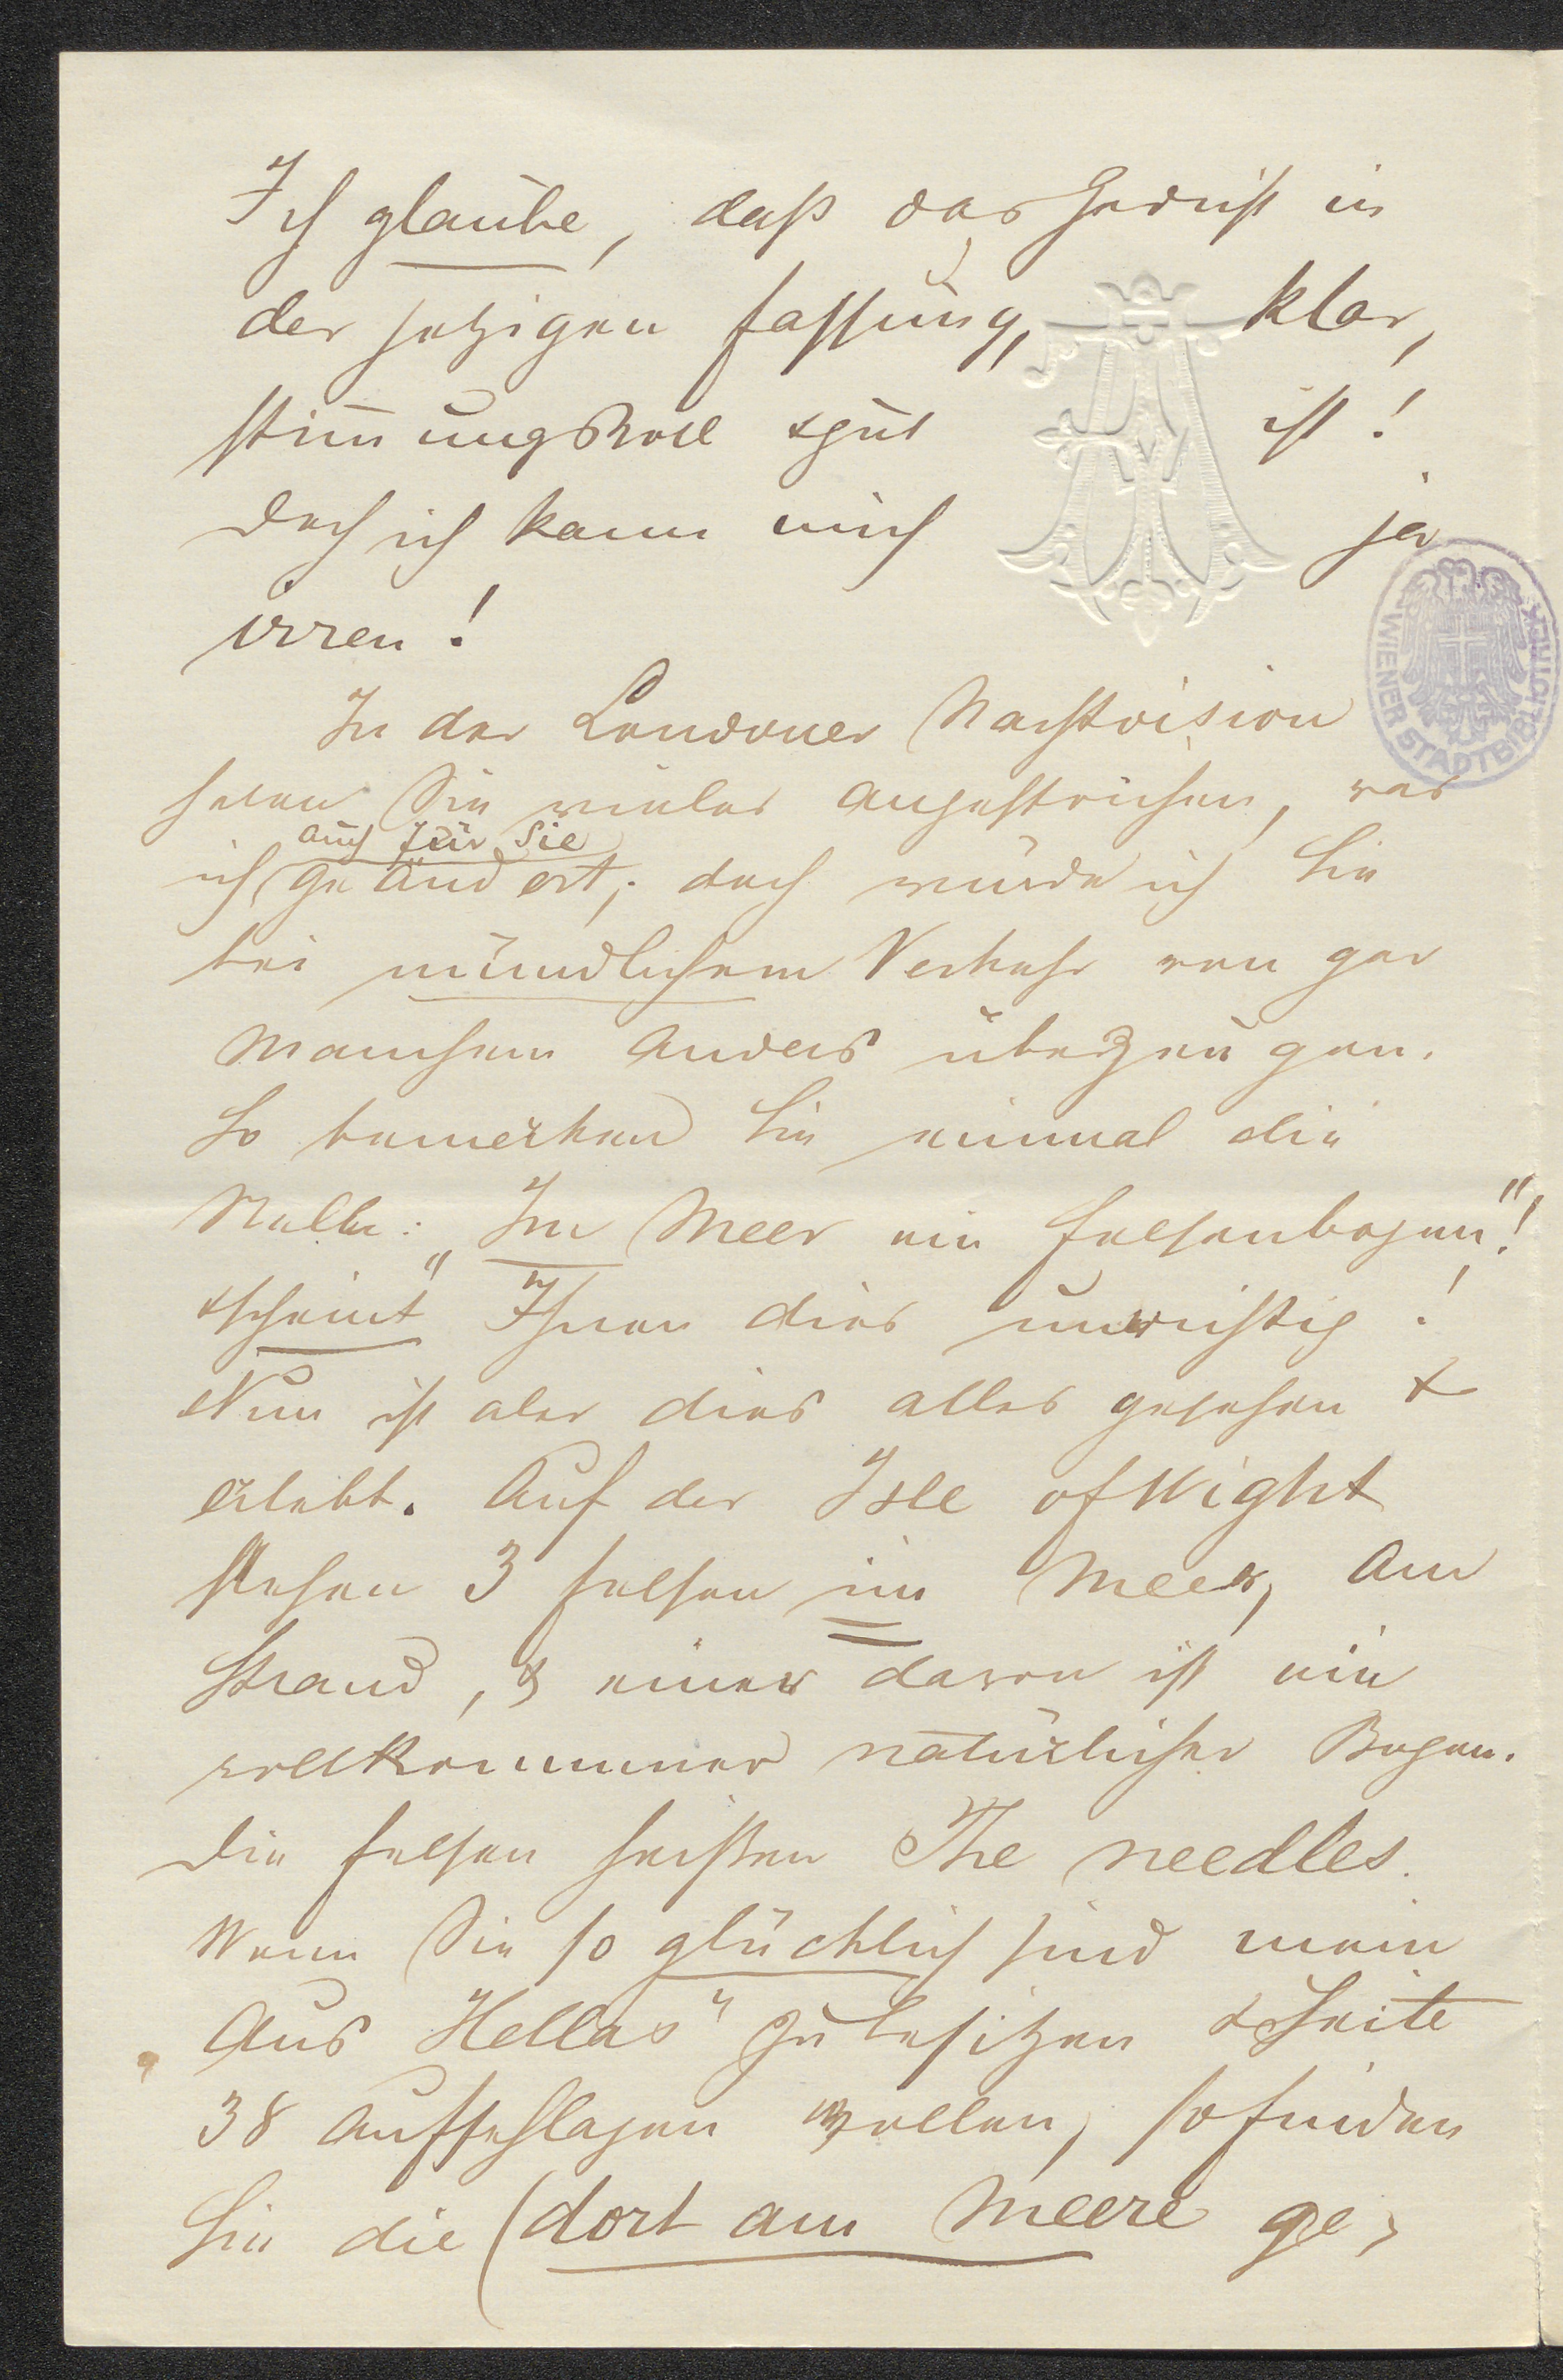 Ich glaube, daß das Gedicht in
der jetzigen Fassung, klar,
stim̄ungsvoll & gut ist!
Doch ich kann mich ja
irren!
In der Londoner Nachtvision
haben Sie vieles angestrichen, was
auch für Sie
ich geändert; doch würde ich Sie
bei mündlichem Verkehr von gar
Manchem Anders überzeugen.
So bemerken Sie einmal die
Stelle: „Im Meer ein Felsenbogen"!
& scheint Ihnen dies unrichtig!
Nun ist aber dies alles gesehen &
erlebt. Auf der Isle of Wight
stehen 3 Felsen im Meer, am
Strand, & einer davon ist ein
vollkommner natürlicher Bogen.
Die Felsen heißen The needles.
Wenn Sie so glücklich sind mein
Aus Hellas" zu besitzen & Seite
38 aufschlagen wollen, so finden
Sie die (dort am Meere ge,
WIENER STADTBIBLIOTHEK